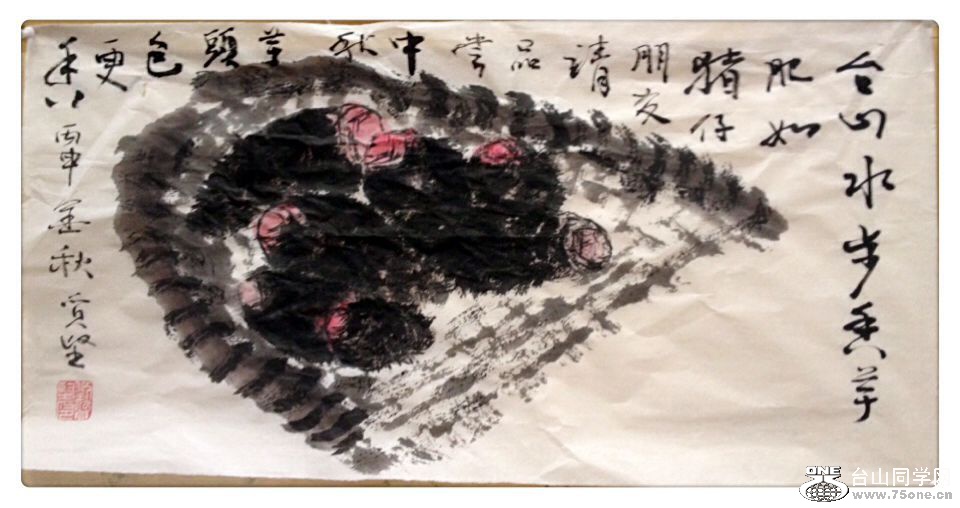 台山水步香芋
肥如
猪仔
朋友
请
品
尝
中
秋
芋
頭
色
更
香丙申金秋贤坚
ONE
台山同学网
www.75one.cn